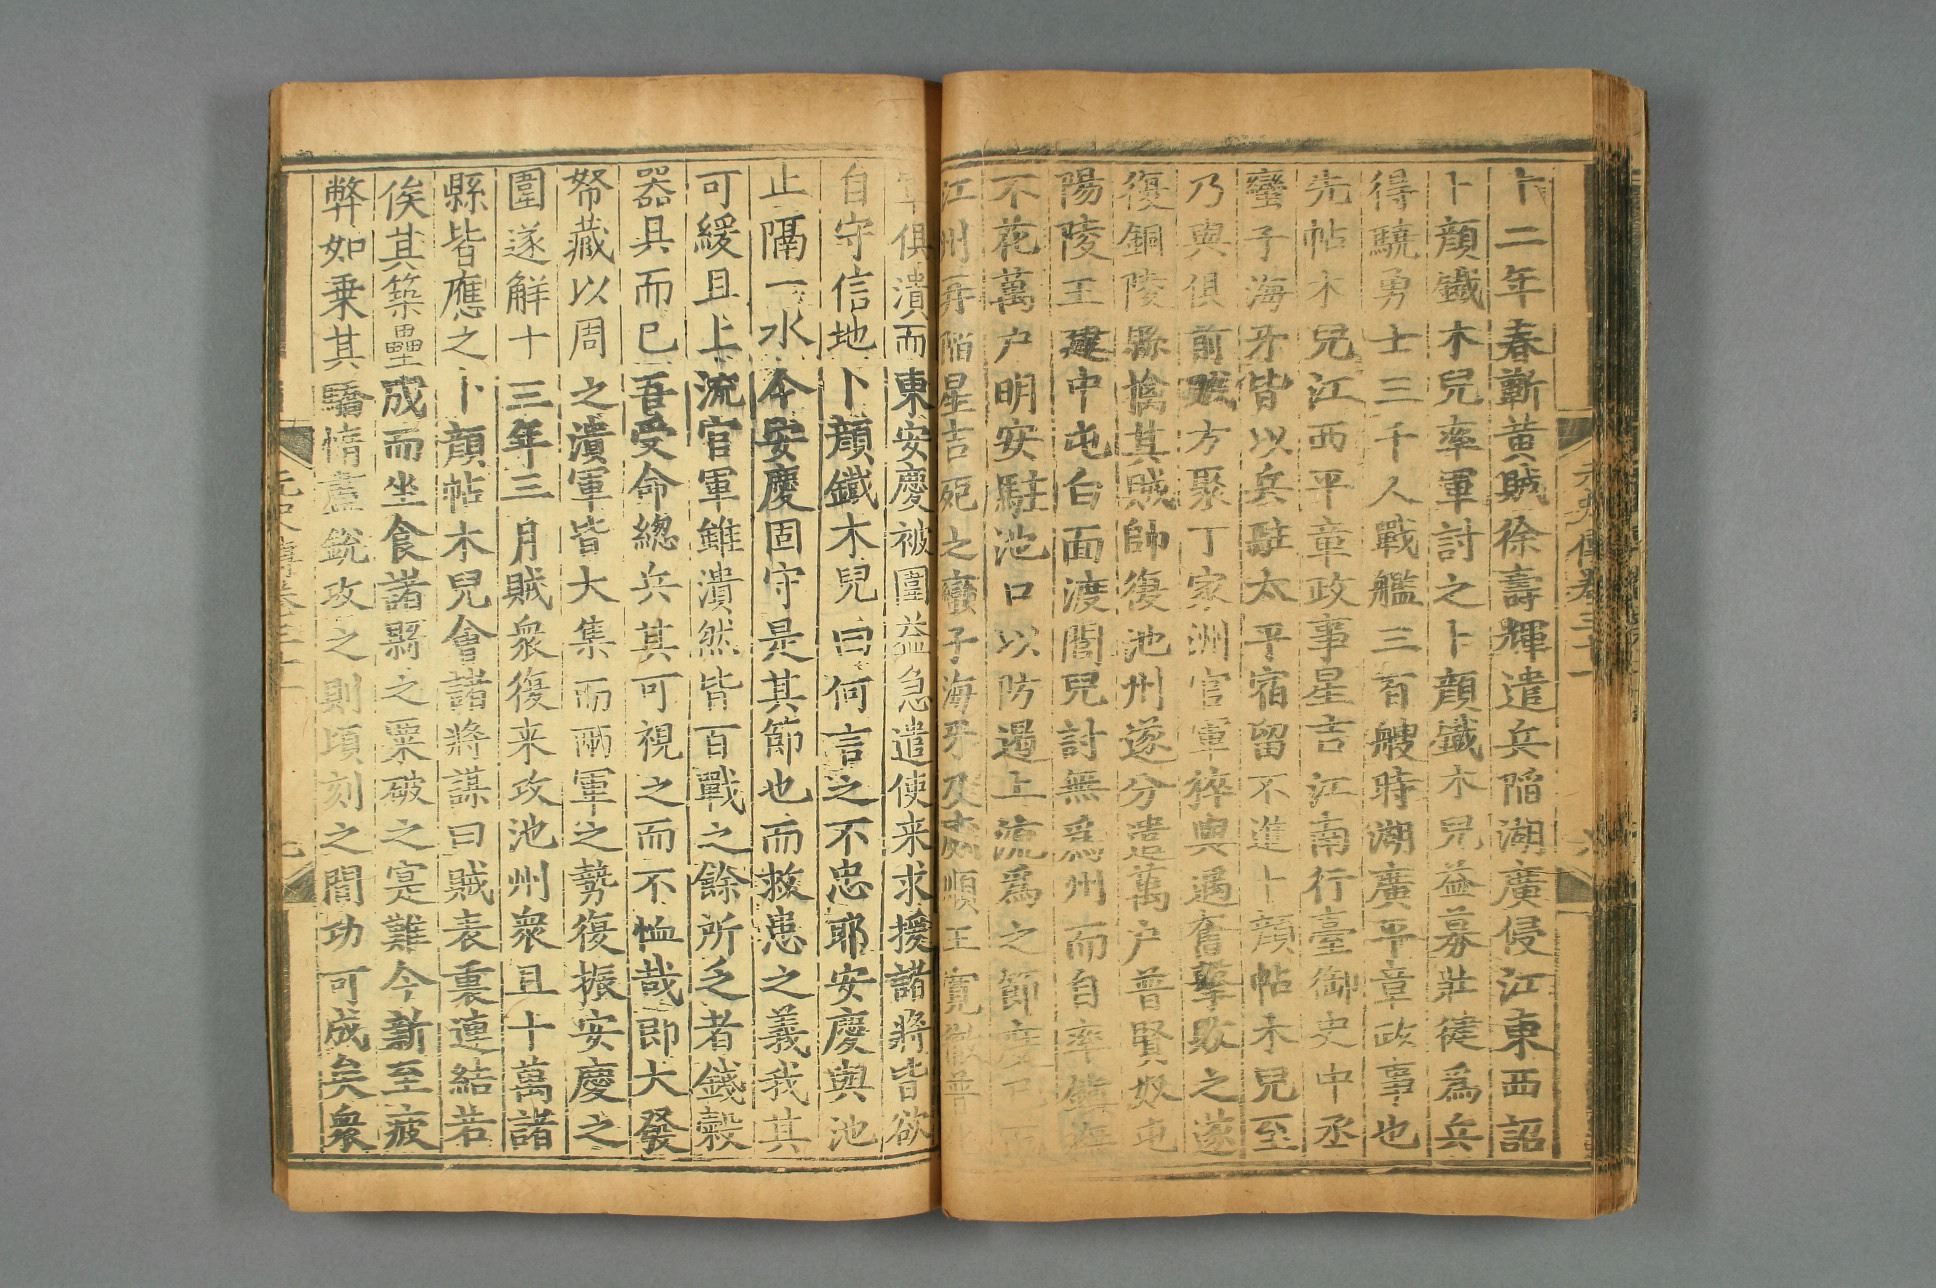 元史傳卷三十一
十二年春蘄黃賊徐壽輝遣兵陷湖廣侵江東西詔
卜顔鐵木兒率軍討之卜顔鐵木兒益募壯健爲兵
得驍勇士三千人戰艦三百艘時湖廣平章政事也
先帖木兒江西平章政事星吉江南行臺御史中丞
蠻子海牙皆以兵駐太平宿留不進卜顔帖木兒至
乃與俱前賊方聚丁家洲官軍猝與遇奮擊敗之遂
復銅陵縣擒其賊帥復池州遂分遣萬户普賢奴屯
陽陵王建中屯白面渡閭兒討無爲州而自率鎮撫
不花萬户明安駐池口以防遏上流爲之節度已而
江州再陷星吉死之蠻子海牙及威順王寛徹普
軍俱潰而東安慶被圍益急遣使来求援諸將皆欲
自守信地卜顔鐵木兒曰何言之不忠耶安慶與池
止隔一水今安慶固守是其節也而救患之義我其
可緩且上流官軍雖潰然皆百戰之餘所乏者錢穀
器具而已吾受命總兵其可視之而不恤哉即大發
帑藏以周之潰軍皆大集而兩軍之勢復振安慶之
圍遂解十三年三月賊衆復来攻池州衆且十萬諸
縣皆應之卜顔帖木兒會諸將謀曰賊表裏連結若
俟其築壘成而坐食諸縣之粟破之寔難今新至疲
弊如乗其驕惰盡銳攻之則頃刻之間功可成矣衆
元史傳卷三十一
七